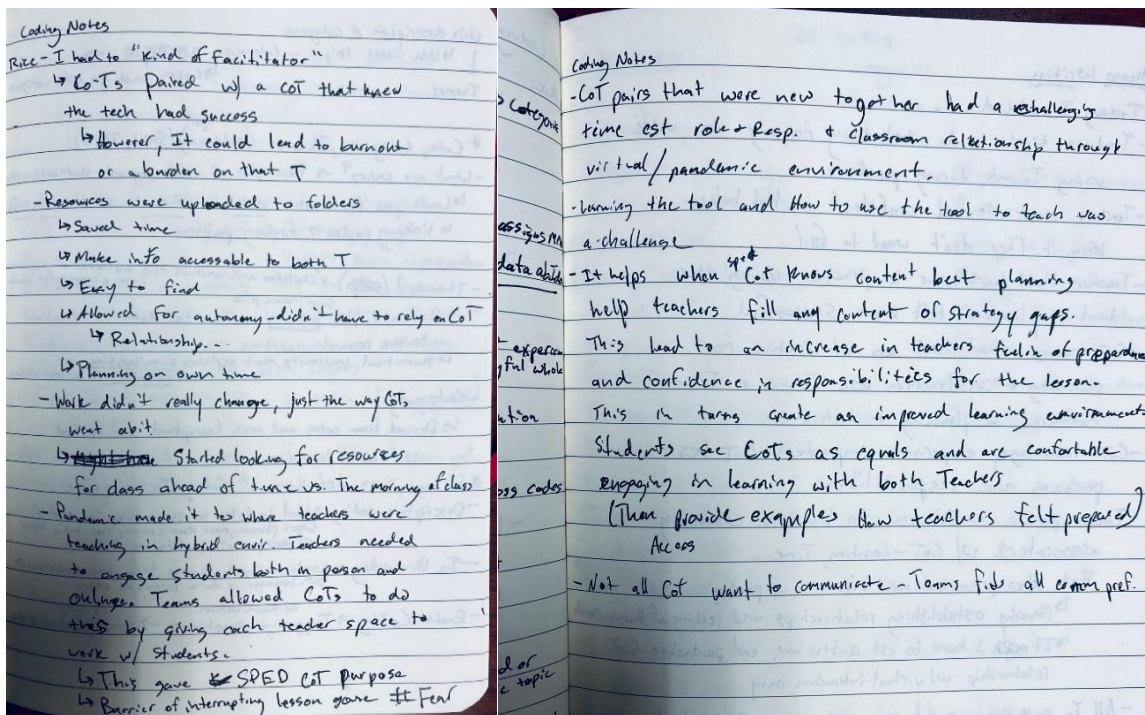 Coding Notes
Rice - I had to "Kind of Facititator"
↳ Co-Ts Paired w/ a CoT that knew
the tech had success
↳ However, It could lead to burnout
or a burden on that T
- Resources were uploaded to folders
↳ Saved time
↳ Make info accessable to both T
↳ Easy to find
↳ Allowed for autonomy - didn't have to rely on CoT
↳ Relationship...
↳ Planning on own time
- Work didn't really change, just the way CoTs
went abit
↳ Started looking for resources
for class ahead of time vs. The morning of class
- Pandemic made it to where teachers were
teaching in hybrid envir. Teachers needed
to engage students both in person and
online. Teams allowed CoTs to do
this by giving each teacher space to
work w/ students.
↳ This gave SPED CoT purpose
↳ Barrier of interrupting lesson gone # Fear
Categorie
assigns
data
experien
ful whole
ntion
oss codes
d or
e topic
Coding Notes
- CoT pairs that were new together had a challenging
time est role + Resp. + Classroom relationship through
virtual/pandemic environment.
- Learning the tool and How to use the tool to teach was
a challenge
- It helps when sped CoT knows content best planning
help teachers fill any content or strategy gaps.
This lead to an increase in teachers feelin of preparedne
and confidence in responsibilities for the lesson.
This in turns create an improved learning environment.
Students see CoTs as equals and are comfortable
engaging in learning with both Teachers
(Then provide examples How teachers felt prepared)
Across
- Not all CoT want to communicate - Teams all comm pref.